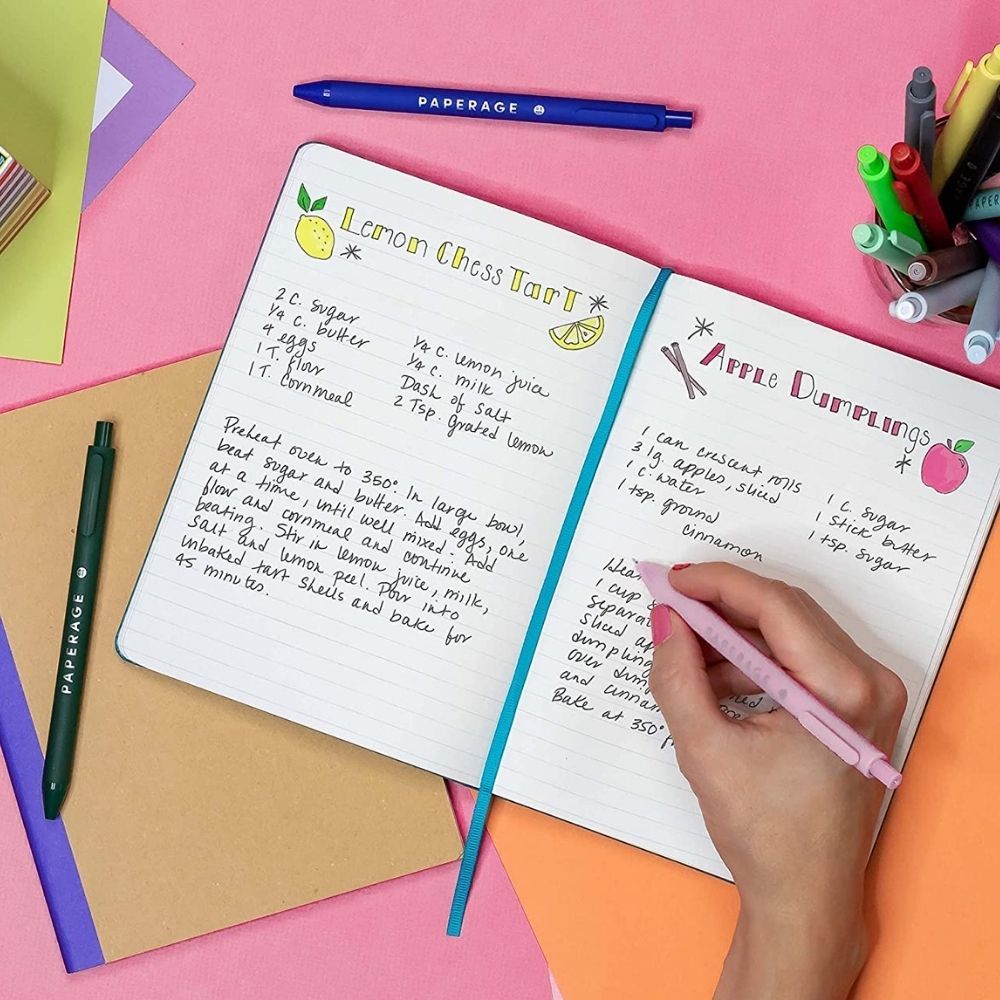 PAPERAGE
Lemon Chess Tart
2 C. sugar
1/4 C. butter
4 eggs
1 T. flour
1 T. Cornmeal
1/4 C. lemon juice
1/4 C. milk
Dash of salt
2 Tsp. grated lemon
Preheat oven to 350° In large bowl,
beat sugar and butter. Add eggs, one
at a time, until well mixed. Add
flour and cornmeal and continue
beating. Stir in lemon juice, milk,
salt and lemon peel. Pour into
unbaked tart shells and bake for
45 minutes.
Apple Dumplings
1 can crescent rolls
3 lg. apples, sliced
1 c. water
1 tsp. ground
cinnamon
1 C. sugar
1 stick butter
1 tsp. sugar
1 cup
sliced
dumpling
over
and
Bake at 350°
PAPERAGE
PAPERAGE